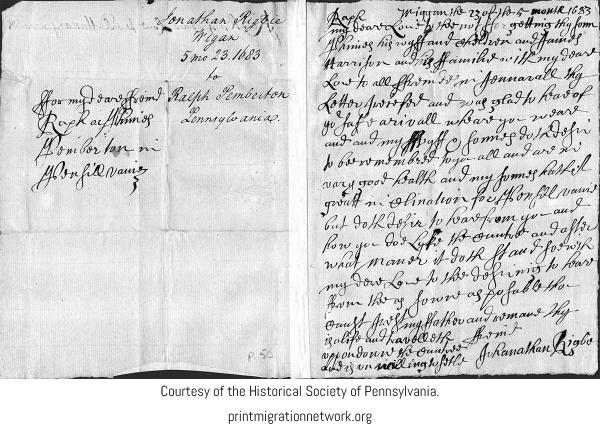 Jonathan Rigbie
Wigan
5 mo 23. 1683
to
Ralph Pemberton
Pennsylvania.
ffor my deare ffreind
Raph at Phines
Pemberton in
Pensillvanie
P. 50
Raph Wiggan the 23 of the 5 month 1683
my deare Love to thee not for getting thy sonn
Phines his wyff and Children and James
Harrison and his ffamilie with my deare
Love to all ffreindes in Jennarall thy
Letter I receved and was glad to heare of
yo safe arivall wheare you weare
and and my wyff & sonnes doth desir
to bee remembred to you all and are in
vary good health and my sonnes hath a
greatt in Clination for Pensillvanie
but doth desir to heare from you and
how you doe Lyke the Cuntrie and after
what maner it doth stand soe with
my dere Love to thee desiring to heare
from thee as soone as posable thou
Canst my ffather and remane thy
is alife and travelleth ffreind
up on downe the Cuntree
and is willing to
Johanathan Rigbe
Courtesy of the Historical Society of Pennsylvania.
printmigrationnetwork.org